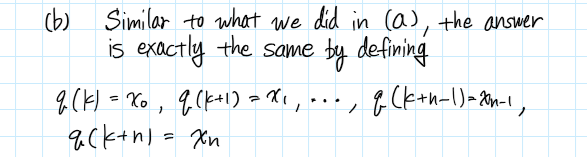 (b) Similar to what we did in (a), the answer
is exactly the same by defining
q(k) = x₀, q(k+1) = x₁, ..., q(k+n-1) = xₙ₋₁,
q(k+n) = xₙ